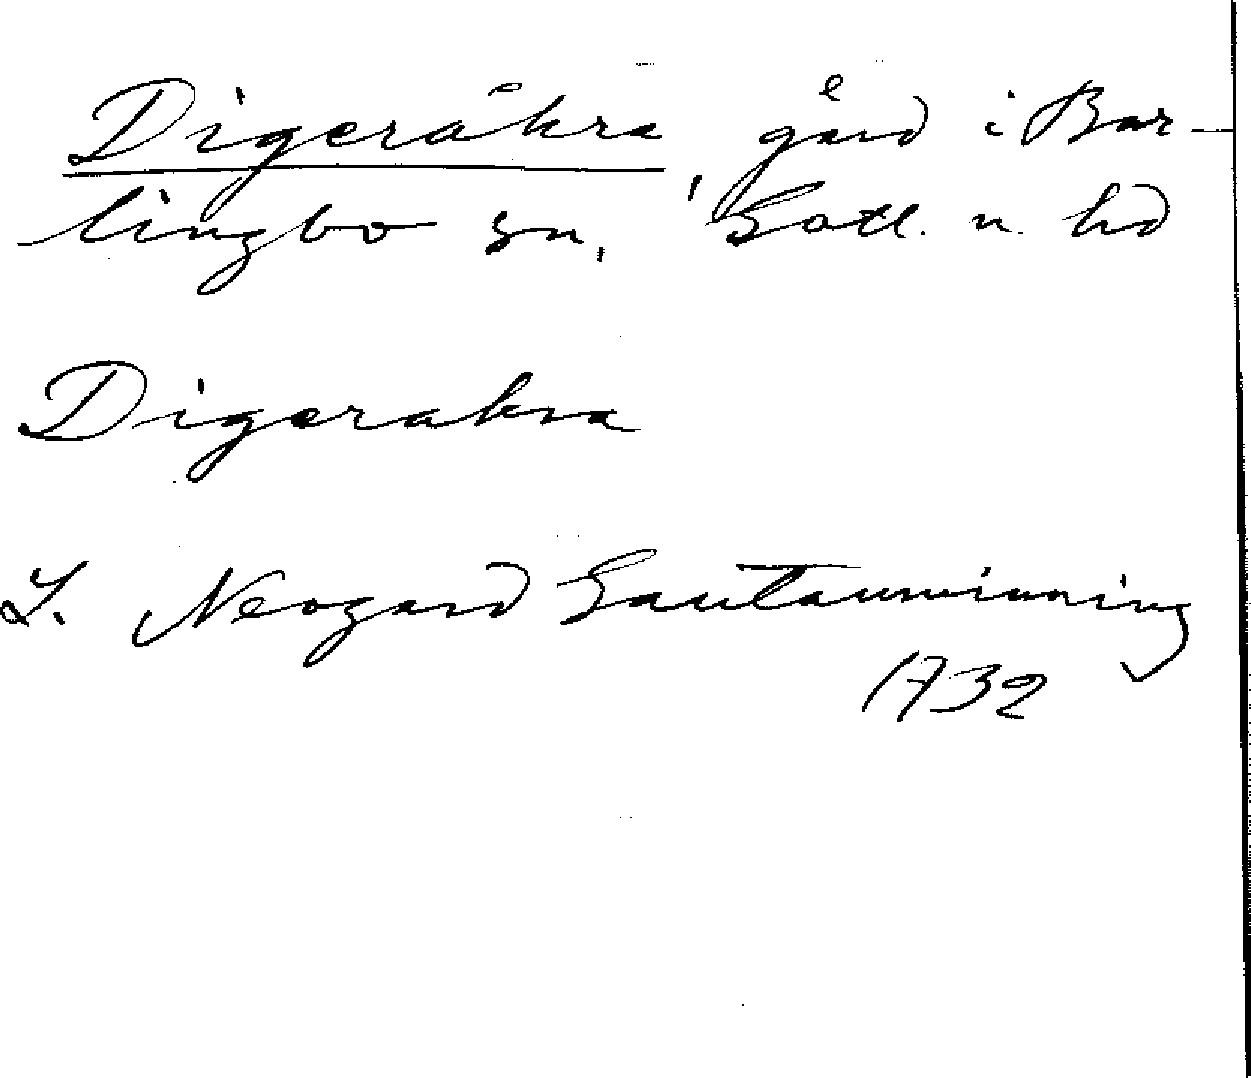 Digeråkra, gård i Bar-
lingbo sn, Gotl. n. hd
Digerakra
J. Neogard Gautauminning
1732